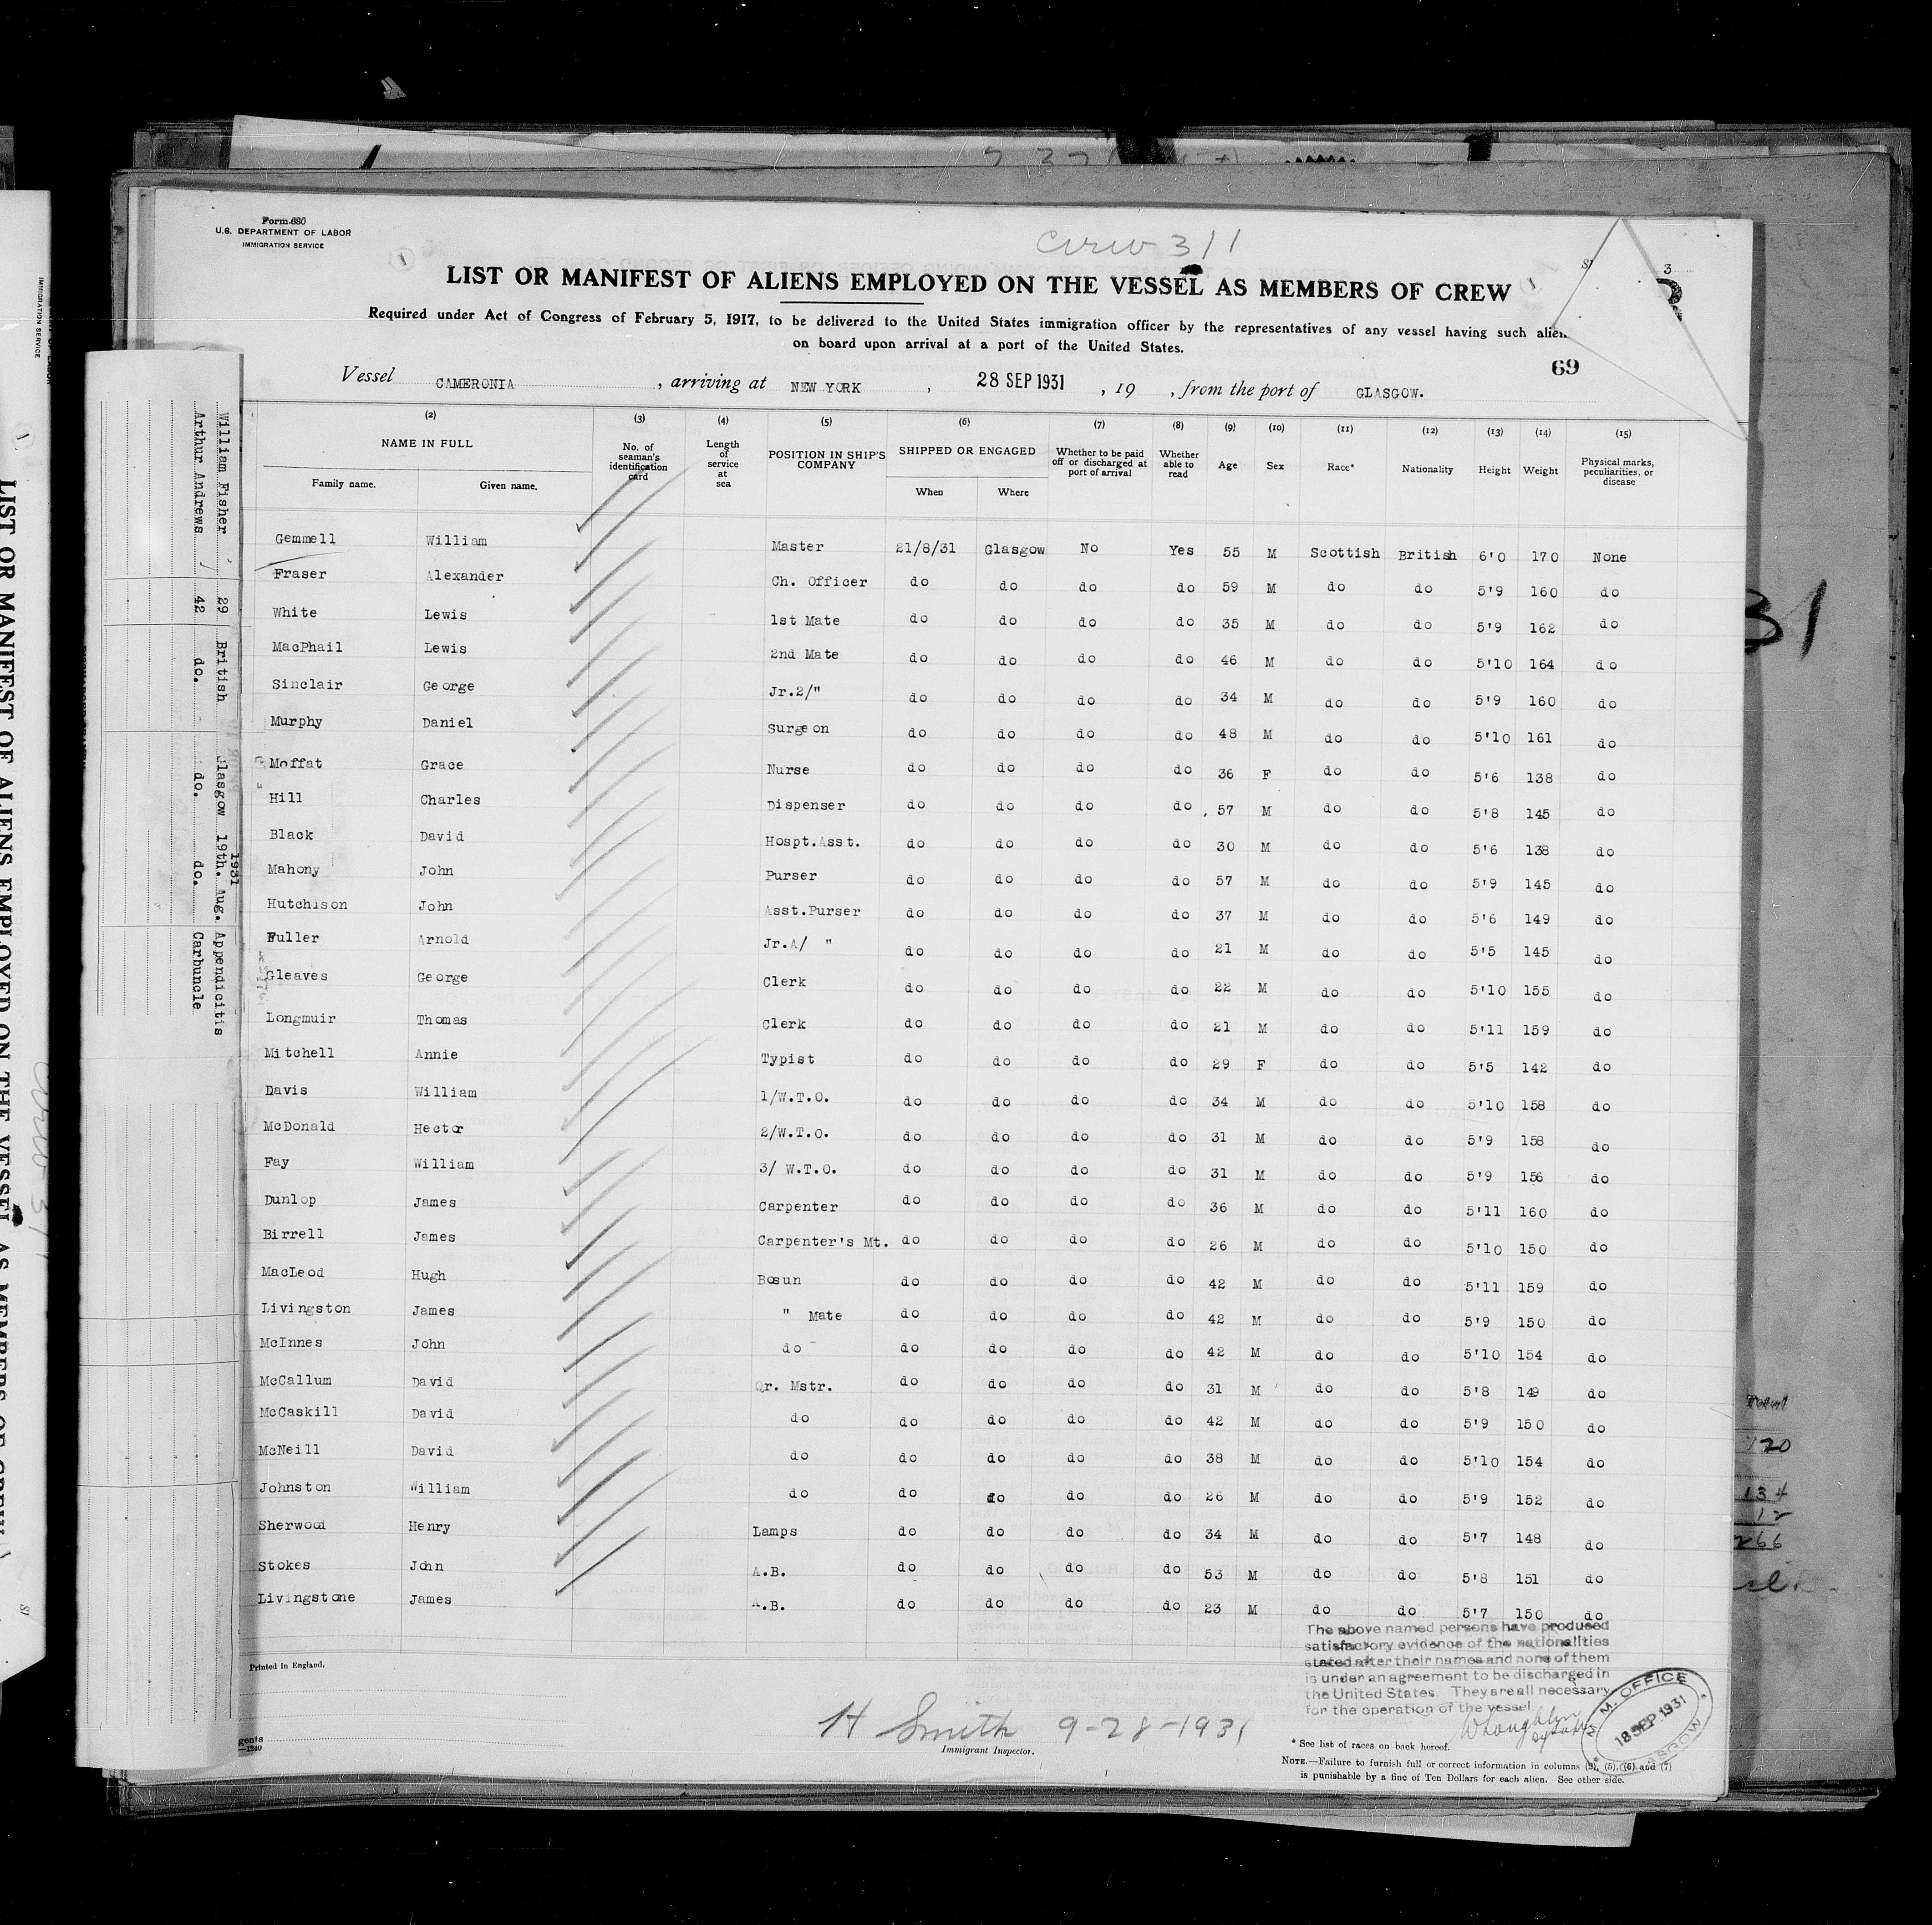 Form 680
U.S. DEPARTMENT OF LABOR
IMMIGRATION SERVICE
Crew 311
3
LIST OR MANIFEST OF ALIENS EMPLOYED ON THE VESSEL AS MEMBERS OF CREW
Required under Act of Congress of February 5, 1917, to be delivered to the United States immigration officer by the representatives of any vessel having such
on board upon arrival at a port of the United States.
69
Vessel CAMERONIA, arriving at NEW YORK, 28 SEP 1931, 19 , from the port of GLASGOW.
(2) (3) (4) (5) (6) (7) (8) (9) (10) (11) (12) (13) (14) (15)
NAME IN FULL No. of seaman's identification card Length of service at sea POSITION IN SHIP'S COMPANY SHIPPED OR ENGAGED Whether to be paid off or discharged at port of arrival Whether able to read Age Sex Race* Nationality Height Weight Physical marks, peculiarities, or disease
Family name. Given name. When Where
Gemmell William Master 21/8/31 Glasgow No Yes 55 M Scottish British 6'0 170 None
Fraser Alexander Ch. Officer do do do do 59 M do do 5'9 160 do
White Lewis 1st Mate do do do do 35 M do do 5'9 162 do
MacPhail Lewis 2nd Mate do do do do 46 M do do 5'10 164 do
Sinclair George Jr.2/" do do do do 34 M do do 5'9 160 do
Murphy Daniel Surgeon do do do do 48 M do do 5'10 161 do
Moffat Grace Nurse do do do do 36 F do do 5'6 138 do
Hill Charles Dispenser do do do do 57 M do do 5'8 145 do
Black David Hospt.Asst. do do do do 30 M do do 5'6 138 do
Mahony John Purser do do do do 57 M do do 5'9 145 do
Hutchison John Asst.Purser do do do do 37 M do do 5'6 149 do
Fuller Arnold Jr.A/ " do do do do 21 M do do 5'5 145 do
Gleaves George Clerk do do do do 22 M do do 5'10 155 do
Longmuir Thomas Clerk do do do do 21 M do do 5'11 159 do
Mitchell Annie Typist do do do do 29 F do do 5'5 142 do
Davis William 1/W.T.O. do do do do 34 M do do 5'10 158 do
McDonald Hector 2/W.T.O. do do do do 31 M do do 5'9 158 do
Fay William 3/ W.T.O. do do do do 31 M do do 5'9 156 do
Dunlop James Carpenter do do do do 36 M do do 5'11 160 do
Birrell James Carpenter's Mt. do do do do 26 M do do 5'10 150 do
MacLeod Hugh Bosun do do do do 42 M do do 5'11 159 do
Livingston James " Mate do do do do 42 M do do 5'9 150 do
McInnes John do do do do do 42 M do do 5'10 154 do
McCallum David Qr. Mstr. do do do do 31 M do do 5'8 149 do
McCaskill David do do do do do 42 M do do 5'9 150 do
McNeill David do do do do do 38 M do do 5'10 154 do
Johnston William do do do do do 26 M do do 5'9 152 do
Sherwood Henry Lamps do do do do 34 M do do 5'7 148 do
Stokes John A.B. do do do do 53 M do do 5'8 151 do
Livingstone James A.B. do do do do 23 M do do 5'7 150 do
The above named persons have produced
satisfactory evidence of the nationalities
stated after their names and none of them
is under an agreement to be discharged in
the United States. They are all necessary
for the operation of the vessel
Printed in England.
H Smith 9-28-1931
Immigrant Inspector.
M. M. OFFICE
18 SEP 1931
GLASGOW
* See list of races on back hereof.
NOTE.—Failure to furnish full or correct information in columns (2), (5), (6) and (7)
is punishable by a fine of Ten Dollars for each alien. See other side.
1931
William Fisher 29 British Glasgow 19th. Aug. Appendicitis
Arthur Andrews 42 do. do. do. Carbuncle
IMMIGRATION SERVICE
LIST OR MANIFEST OF ALIENS EMPLOYED ON THE VESSEL AS MEMBERS OF CREW
31
Total
120
134
12
266